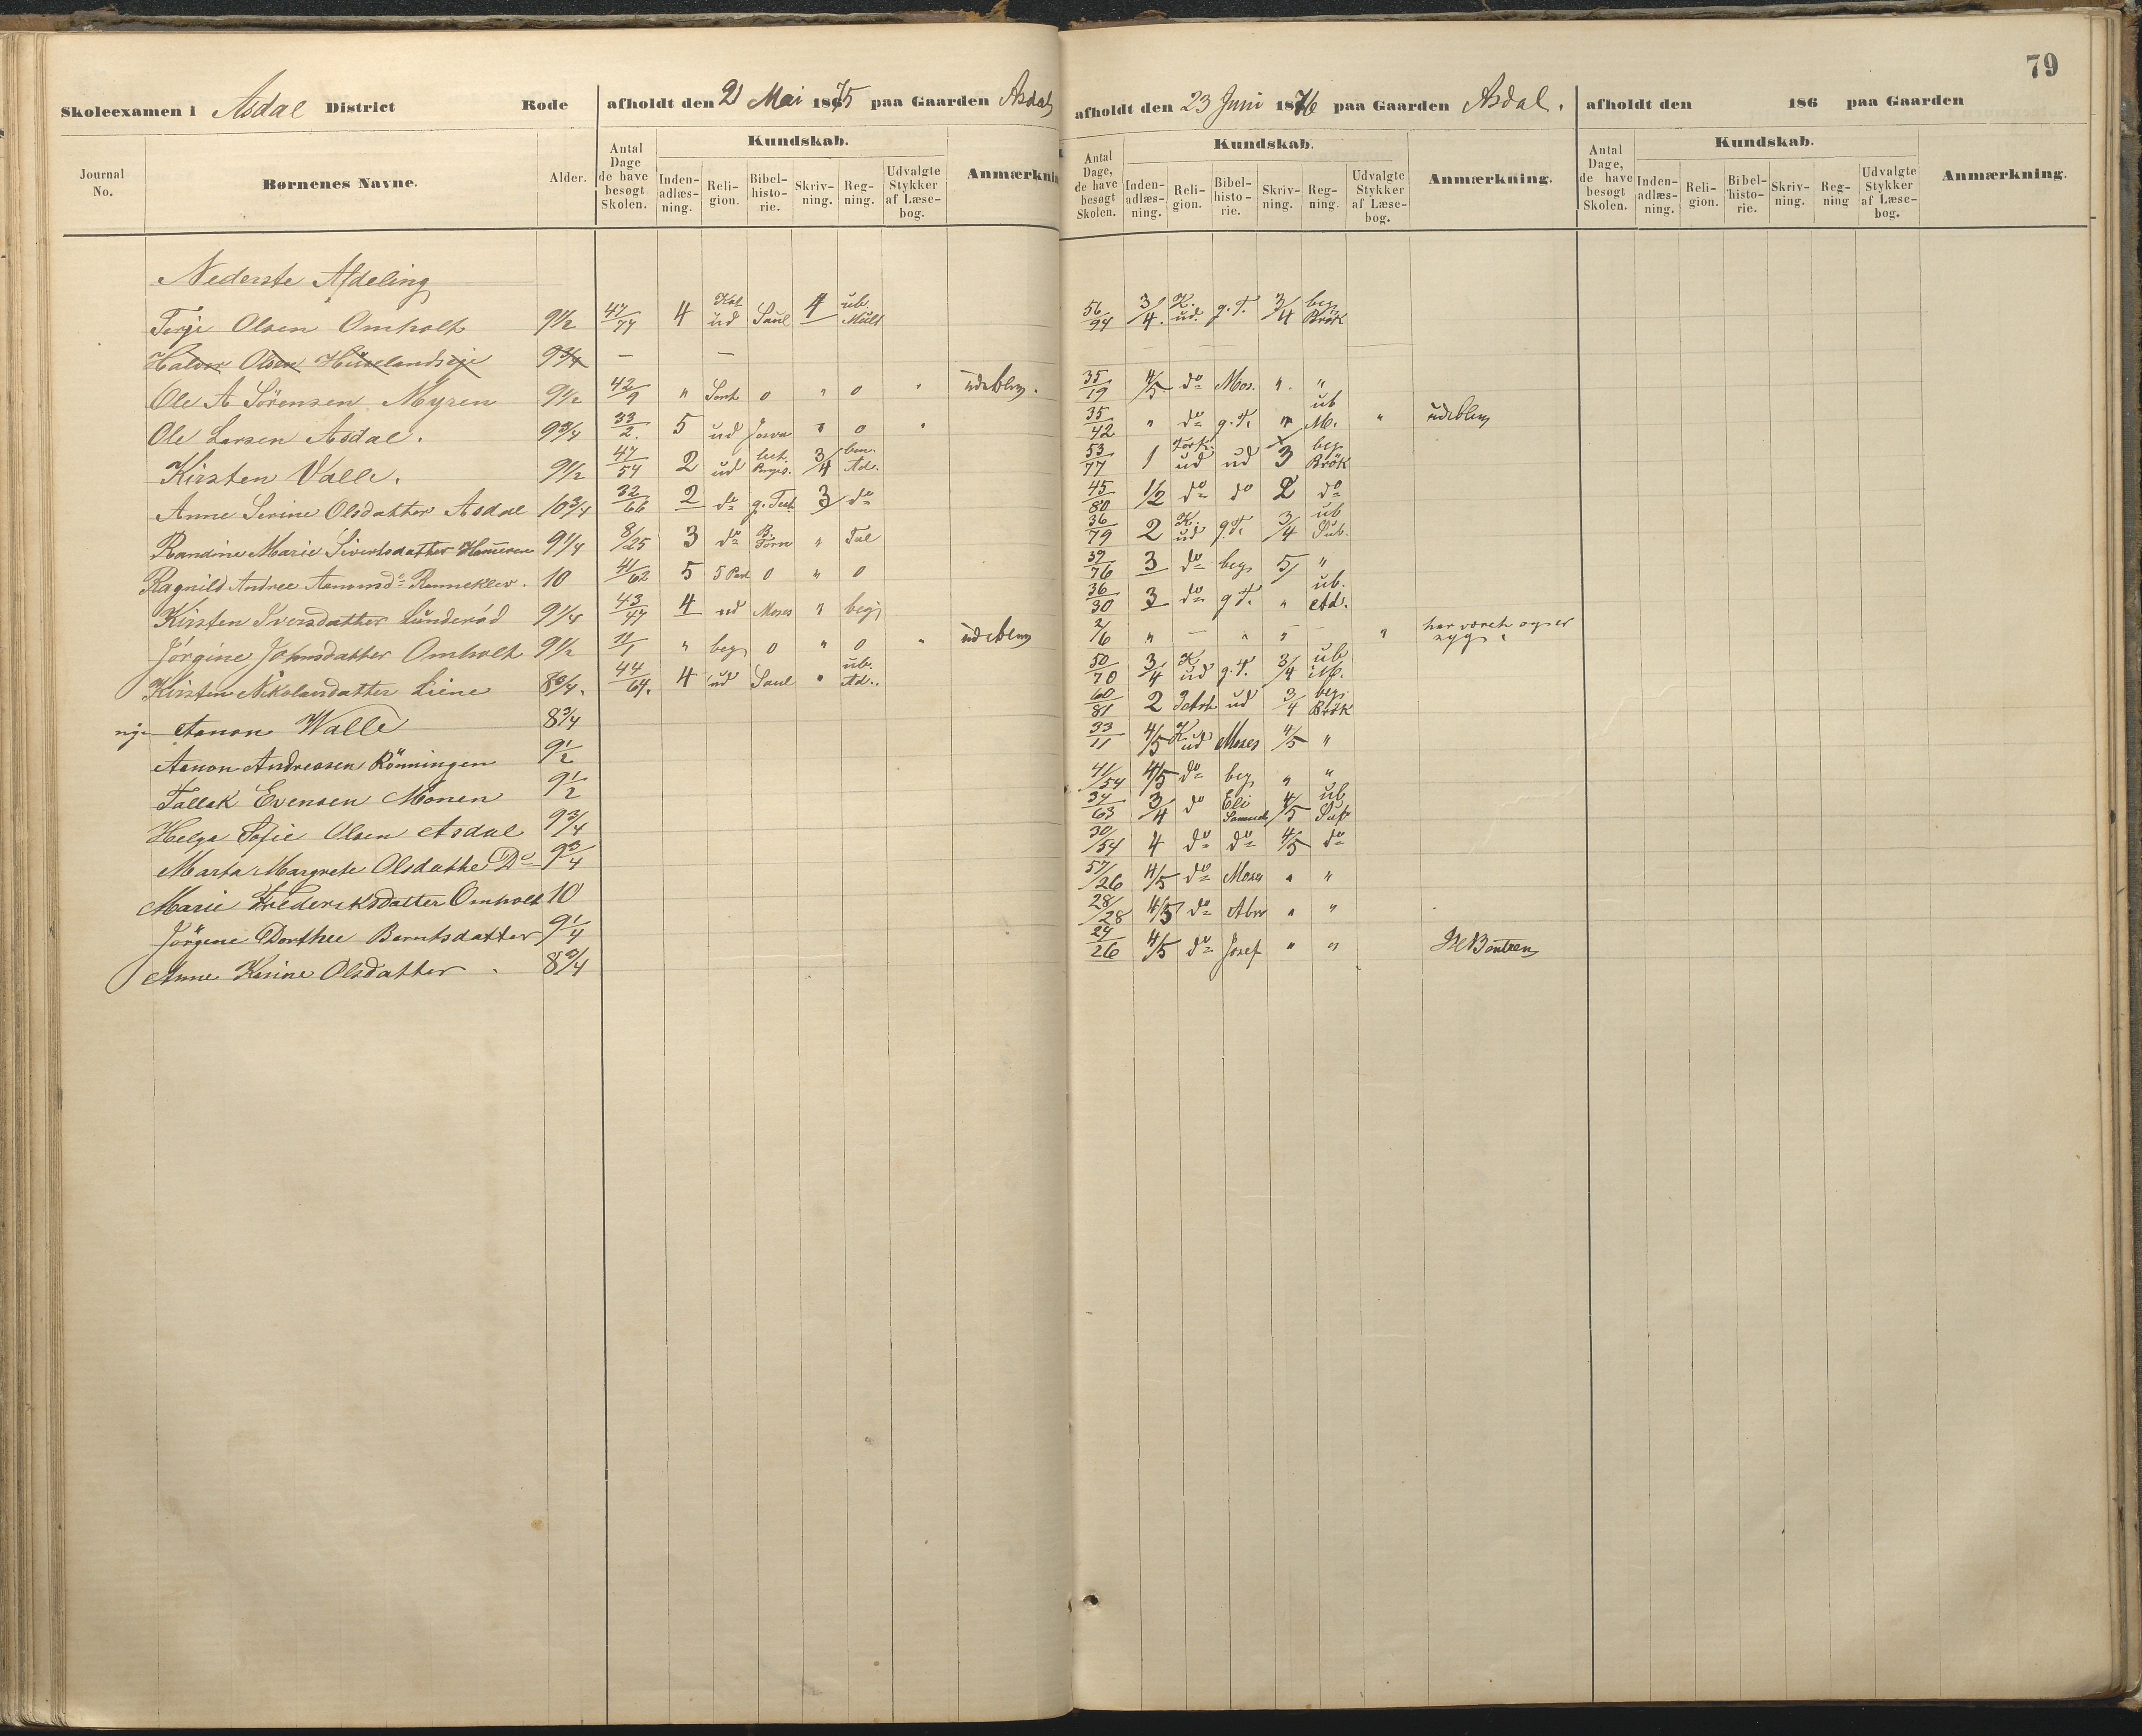 79
Skoleexamen i Asdal District Rode afholdt den 21 Mai 1875 paa Gaarden Asdal afholdt den 23 Juni 1876 paa Gaarden Asdal. afholdt den 186 paa Gaarden
Journal No. Børnenes Navne. Alder. Antal Dage de have besøgt Skolen. Kundskab. Inden-adlæs-ning. Reli-gion. Bibel-histo-rie. Skriv-ning. Reg-ning. Udvalgte Stykker af Læse-bog. Anmærkning
Antal Dage, de have besøgt Skolen. Kundskab. Inden-adlæs-ning. Reli-gion. Bibel-histo-rie. Skriv-ning. Reg-ning. Udvalgte Stykker af Læse-bog. Anmærkning.
Antal Dage, de have besøgt Skolen. Kundskab. Inden-adlæs-ning. Reli-gion. Bibel-histo-rie. Skriv-ning. Reg-ning Udvalgte Stykker af Læse-bog. Anmærkning.
Nederste Afdeling
Terje Olsen Omholt 9 1/2 47/77 4 Kat ud Saul 4 ub. Mult 56/94 3/4. K. ud. g. T. 3/4 beg. Brøk
Halvor Olsen Huselandseje 9 3/4 — —
Ole A Sørensen Myren 9 1/2 42/9 " 0 " 0 " udeblev. 35/19 4/5 do Mos. " "
Ole Larsen Asdal. 9 3/4 33/2. 5 ud Josva " 0 " 35/42 " do g. T. " ub M. " udeblev
Kirsten Valle. 9 1/2 47/54 2 ud 3/4 ben. Ad. 53/77 1 Fork. ud ud 3 beg. Brøk
Anne Serine Olsdatter Asdal 10 3/4 32/66 2 do g. Test 3 do 45/80 1/2 do do 2 do
Randine Marie Sivertsdatter 9 1/4 8/25 3 do B. Törn " Tal 36/79 2 K. ud g. T. 3/4 ub Sub.
Ragnild Andree Aanonsd. Ranneklev. 10 41/62 5 5 Part 0 " 0 39/76 3 do beg 5 "
Kirsten Iversdatter Lunderød 9 1/4 43/47 4 ud Moses " beg 36/30 3 do g T. " ub. Ad.
Jörgine Johnsdatter Omholt 9 1/2 11/1 " beg 0 " 0 " udeblev 2/6 " — " " — " har været og er syg.
Kirstin Nikolausdatter Liene 8 3/4. 44/64. 4 ud Saul " ub. Ad.. 50/70 3/4 K ud g. T. 3/4 ub M.
Aanon Walle 8 3/4 60/81 2 3 Art ud 3/4 beg. Brök
Aanon Andreasen Rönningen 9 1/2 33/11 4/5 K ud Moses 4/5 "
Tallak Evensen Monen 9 1/2 41/54 4/5 do beg " "
Helga Sofie Olsen Asdal 9 3/4 34/63 3/4 do Eli Samuel 4/5 ub Sub
Marta Margrete Olsdatter Do 9 3/4 30/54 4 do do 4/5 do
Marie Frederiksdatter Omholt 10 57/26 4/5 do Moses " "
Jörgine Dorthee Berntsdatter 9 1/4 28/28 4/5 do Abr " "
Anne Karine Olsdatter 8 3/4 24/26 4/5 do Josef " "